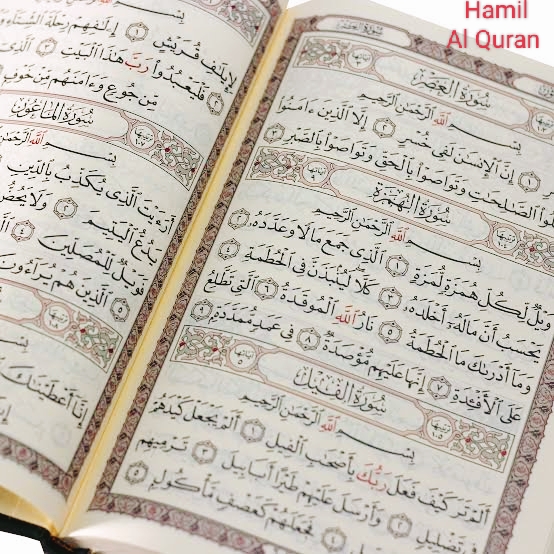 Hamil
Al Quran
سُورَةُ العَصْرِ
سُورَةُ العَصْرِ
بِسْمِ اللَّهِ الرَّحْمَٰنِ الرَّحِيمِ
١ إِنَّ الْإِنسَٰنَ لَفِي خُسْرٍ ٢ إِلَّا الَّذِينَ ءَامَنُوا
الصَّٰلِحَٰتِ وَتَوَاصَوْا بِالْحَقِّ وَتَوَاصَوْا بِالصَّبْرِ ٣
سُورَةُ الْهُمَزَةِ
بِسْمِ اللَّهِ الرَّحْمَٰنِ الرَّحِيمِ
وَيْلٌ لِّكُلِّ هُمَزَةٍ لُّمَزَةٍ ١ الَّذِي جَمَعَ مَالًا وَعَدَّدَهُ ٢
يَحْسَبُ أَنَّ مَالَهُ أَخْلَدَهُ ٣ كَلَّا لَيُنۢبَذَنَّ فِي الْحُطَمَةِ ٤
وَمَا أَدْرَىٰكَ مَا الْحُطَمَةُ ٥ نَارُ اللَّهِ الْمُوقَدَةُ ٦ الَّتِي تَطَّلِعُ
عَلَى الْأَفْئِدَةِ ٧ إِنَّهَا عَلَيْهِم مُّؤْصَدَةٌ ٨ فِي عَمَدٍ مُّمَدَّدَةٍ ٩
سُورَةُ الْفِيلِ
بِسْمِ اللَّهِ الرَّحْمَٰنِ الرَّحِيمِ
أَلَمْ تَرَ كَيْفَ فَعَلَ رَبُّكَ بِأَصْحَٰبِ الْفِيلِ ١ أَلَمْ يَجْعَلْ كَيْدَهُمْ
فِي تَضْلِيلٍ ٢ وَأَرْسَلَ عَلَيْهِمْ طَيْرًا أَبَابِيلَ ٣ تَرْمِيهِم
٤ فَجَعَلَهُمْ كَعَصْفٍ مَّأْكُولٍ
بِسْمِ
لِإِيلَٰفِ قُرَيْشٍ ١ إِۦلَٰفِهِمْ رِحْلَةَ الشِّتَاءِ
فَلْيَعْبُدُوا رَبَّ هَٰذَا الْبَيْتِ ٣ الَّذِي
مِّن جُوعٍ وَءَامَنَهُم مِّنْ خَوْفٍ
سُورَةُ الْمَاعُونِ
بِسْمِ اللَّهِ الرَّحْمَٰنِ
أَرَءَيْتَ الَّذِي يُكَذِّبُ بِالدِّينِ
يَدُعُّ الْيَتِيمَ ٢ وَلَا يَحُضُّ
فَوَيْلٌ لِّلْمُصَلِّينَ ٤
٥ الَّذِينَ هُمْ يُرَاءُونَ
بِسْمِ
إِنَّا أَعْطَيْنَٰكَ